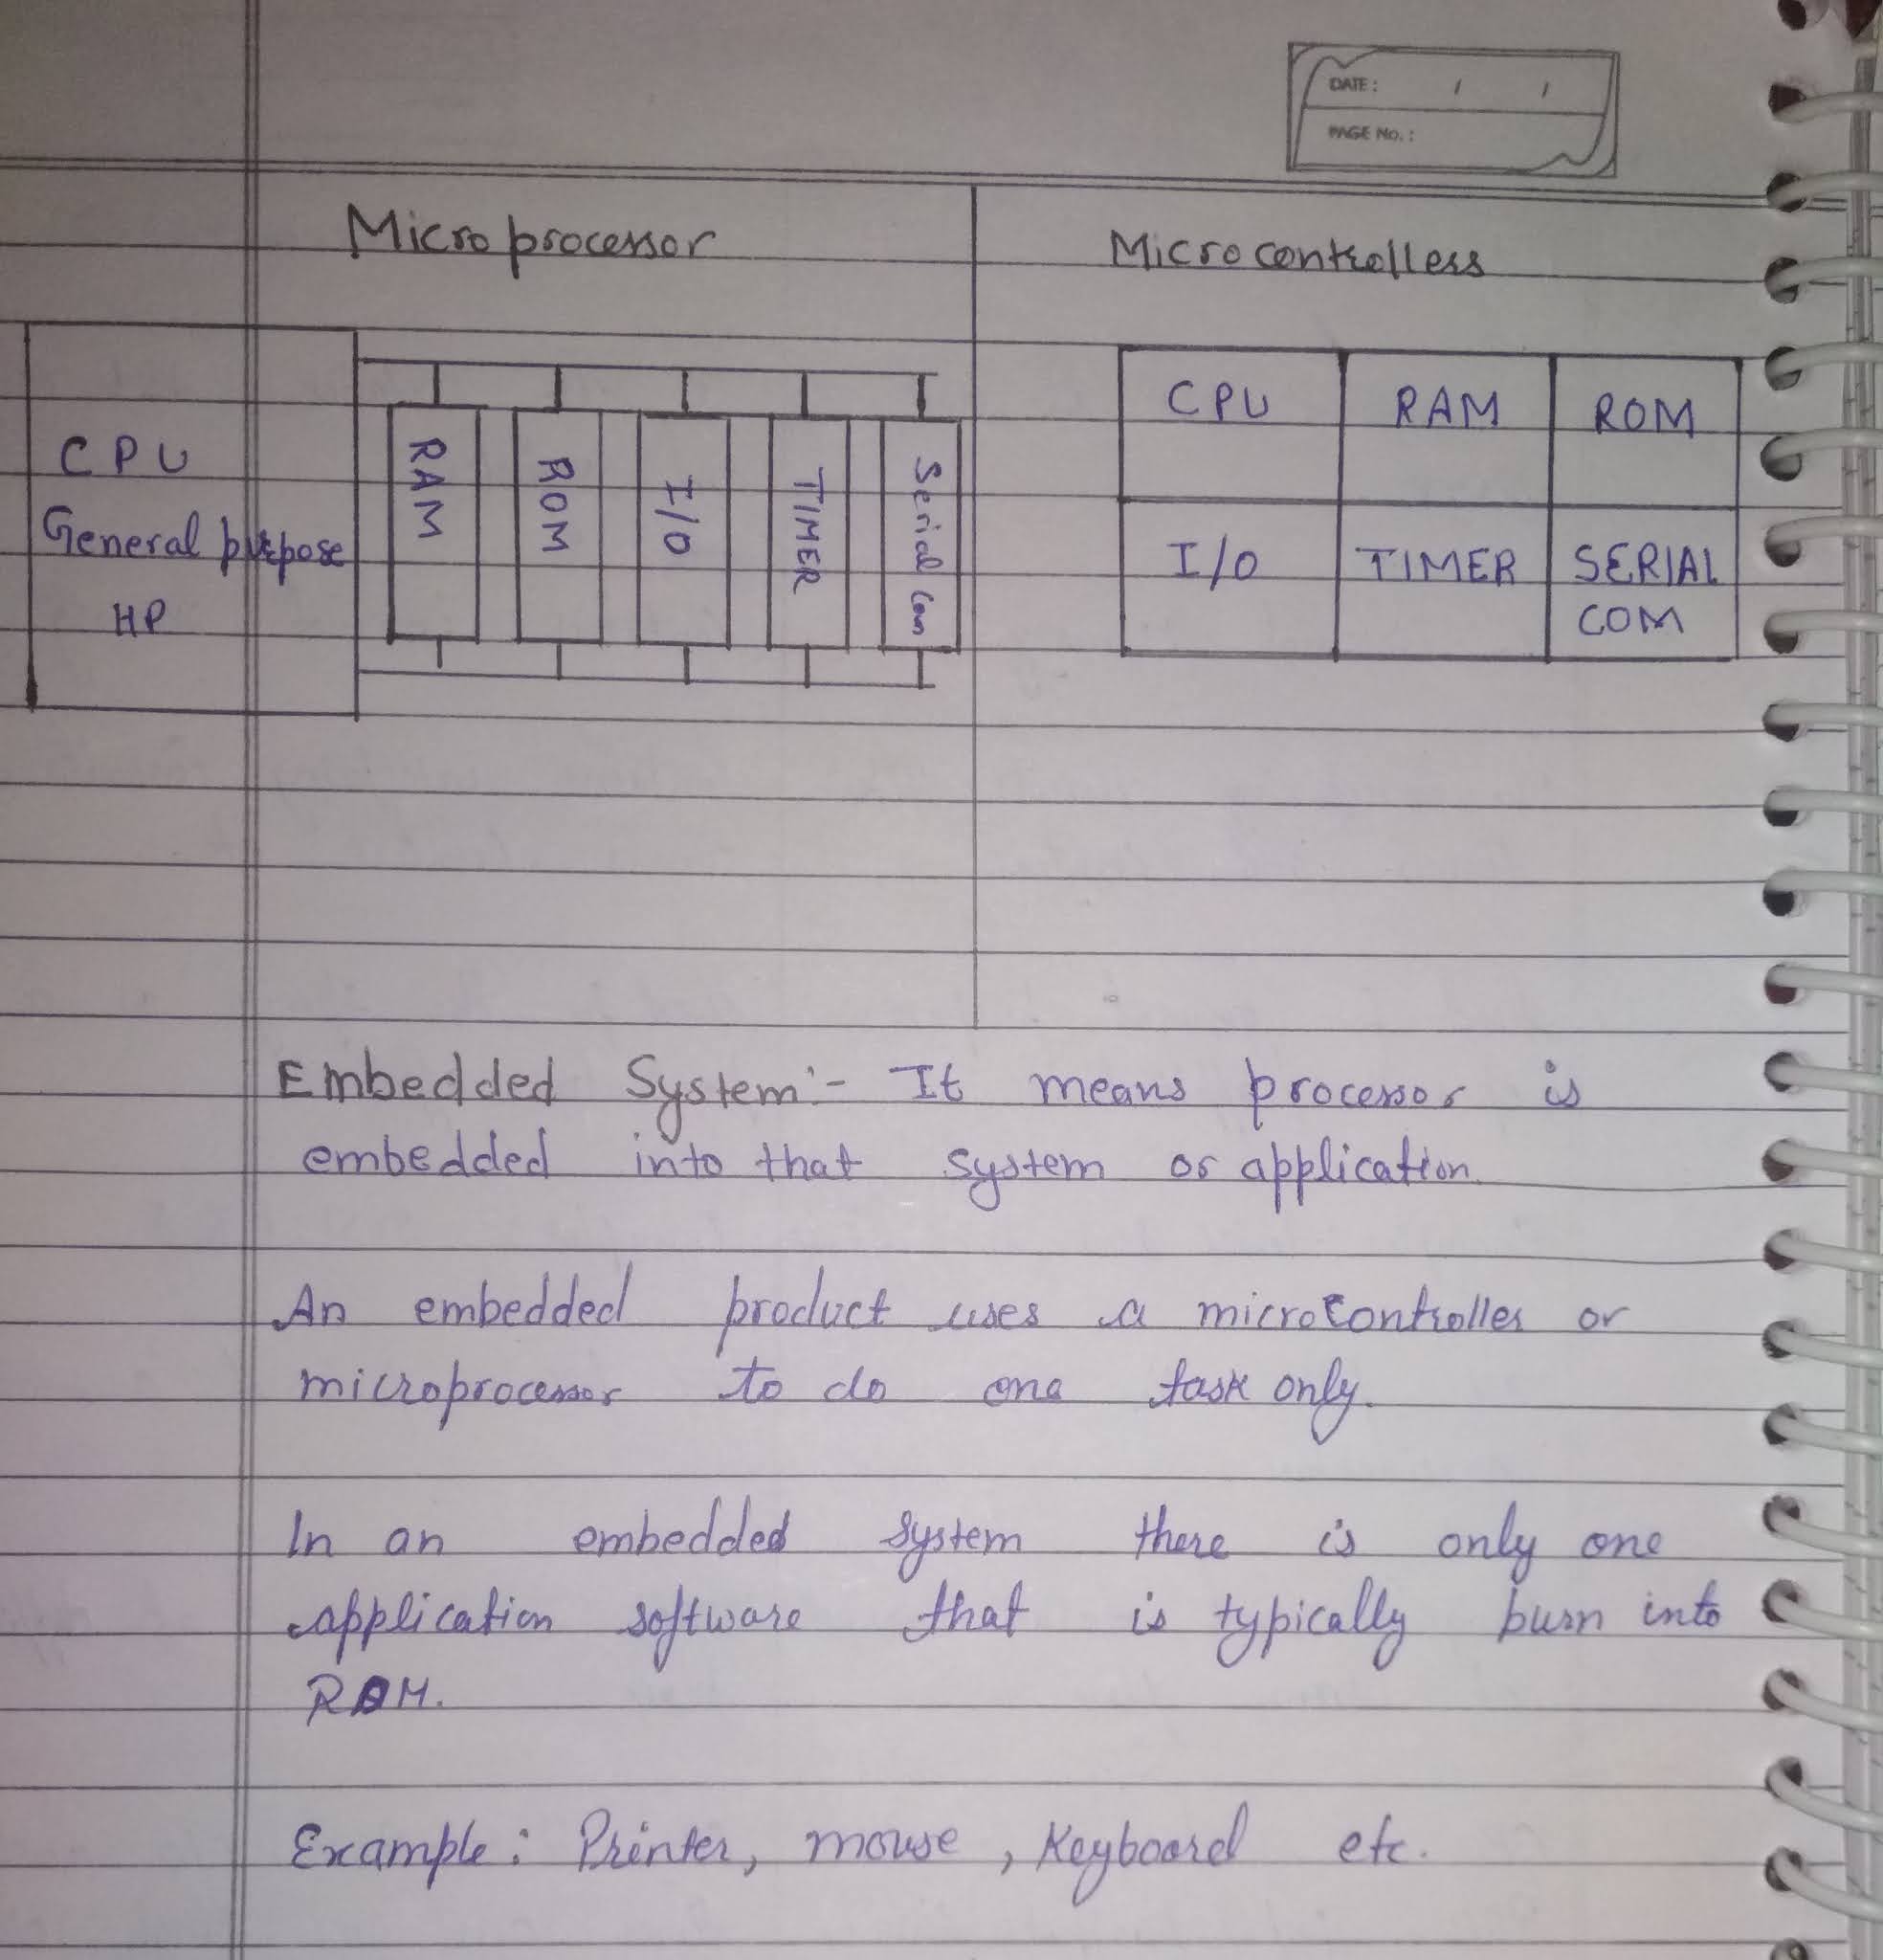 DATE: / /
PAGE No.:
Microprocessor
Microcontrollers
CPU
General purpose
HP
RAM
ROM
I/O
TIMER
Serial Com
CPU
RAM
ROM
I/O
TIMER
SERIAL
COM
Embedded System:- It means processor is
embedded into that system or application.
An embedded product uses a microcontroller or
microprocessor to do one task only.
In an embedded system there is only one
application software that is typically burn into
ROM.
Example: Printer, mouse, Keyboard etc.